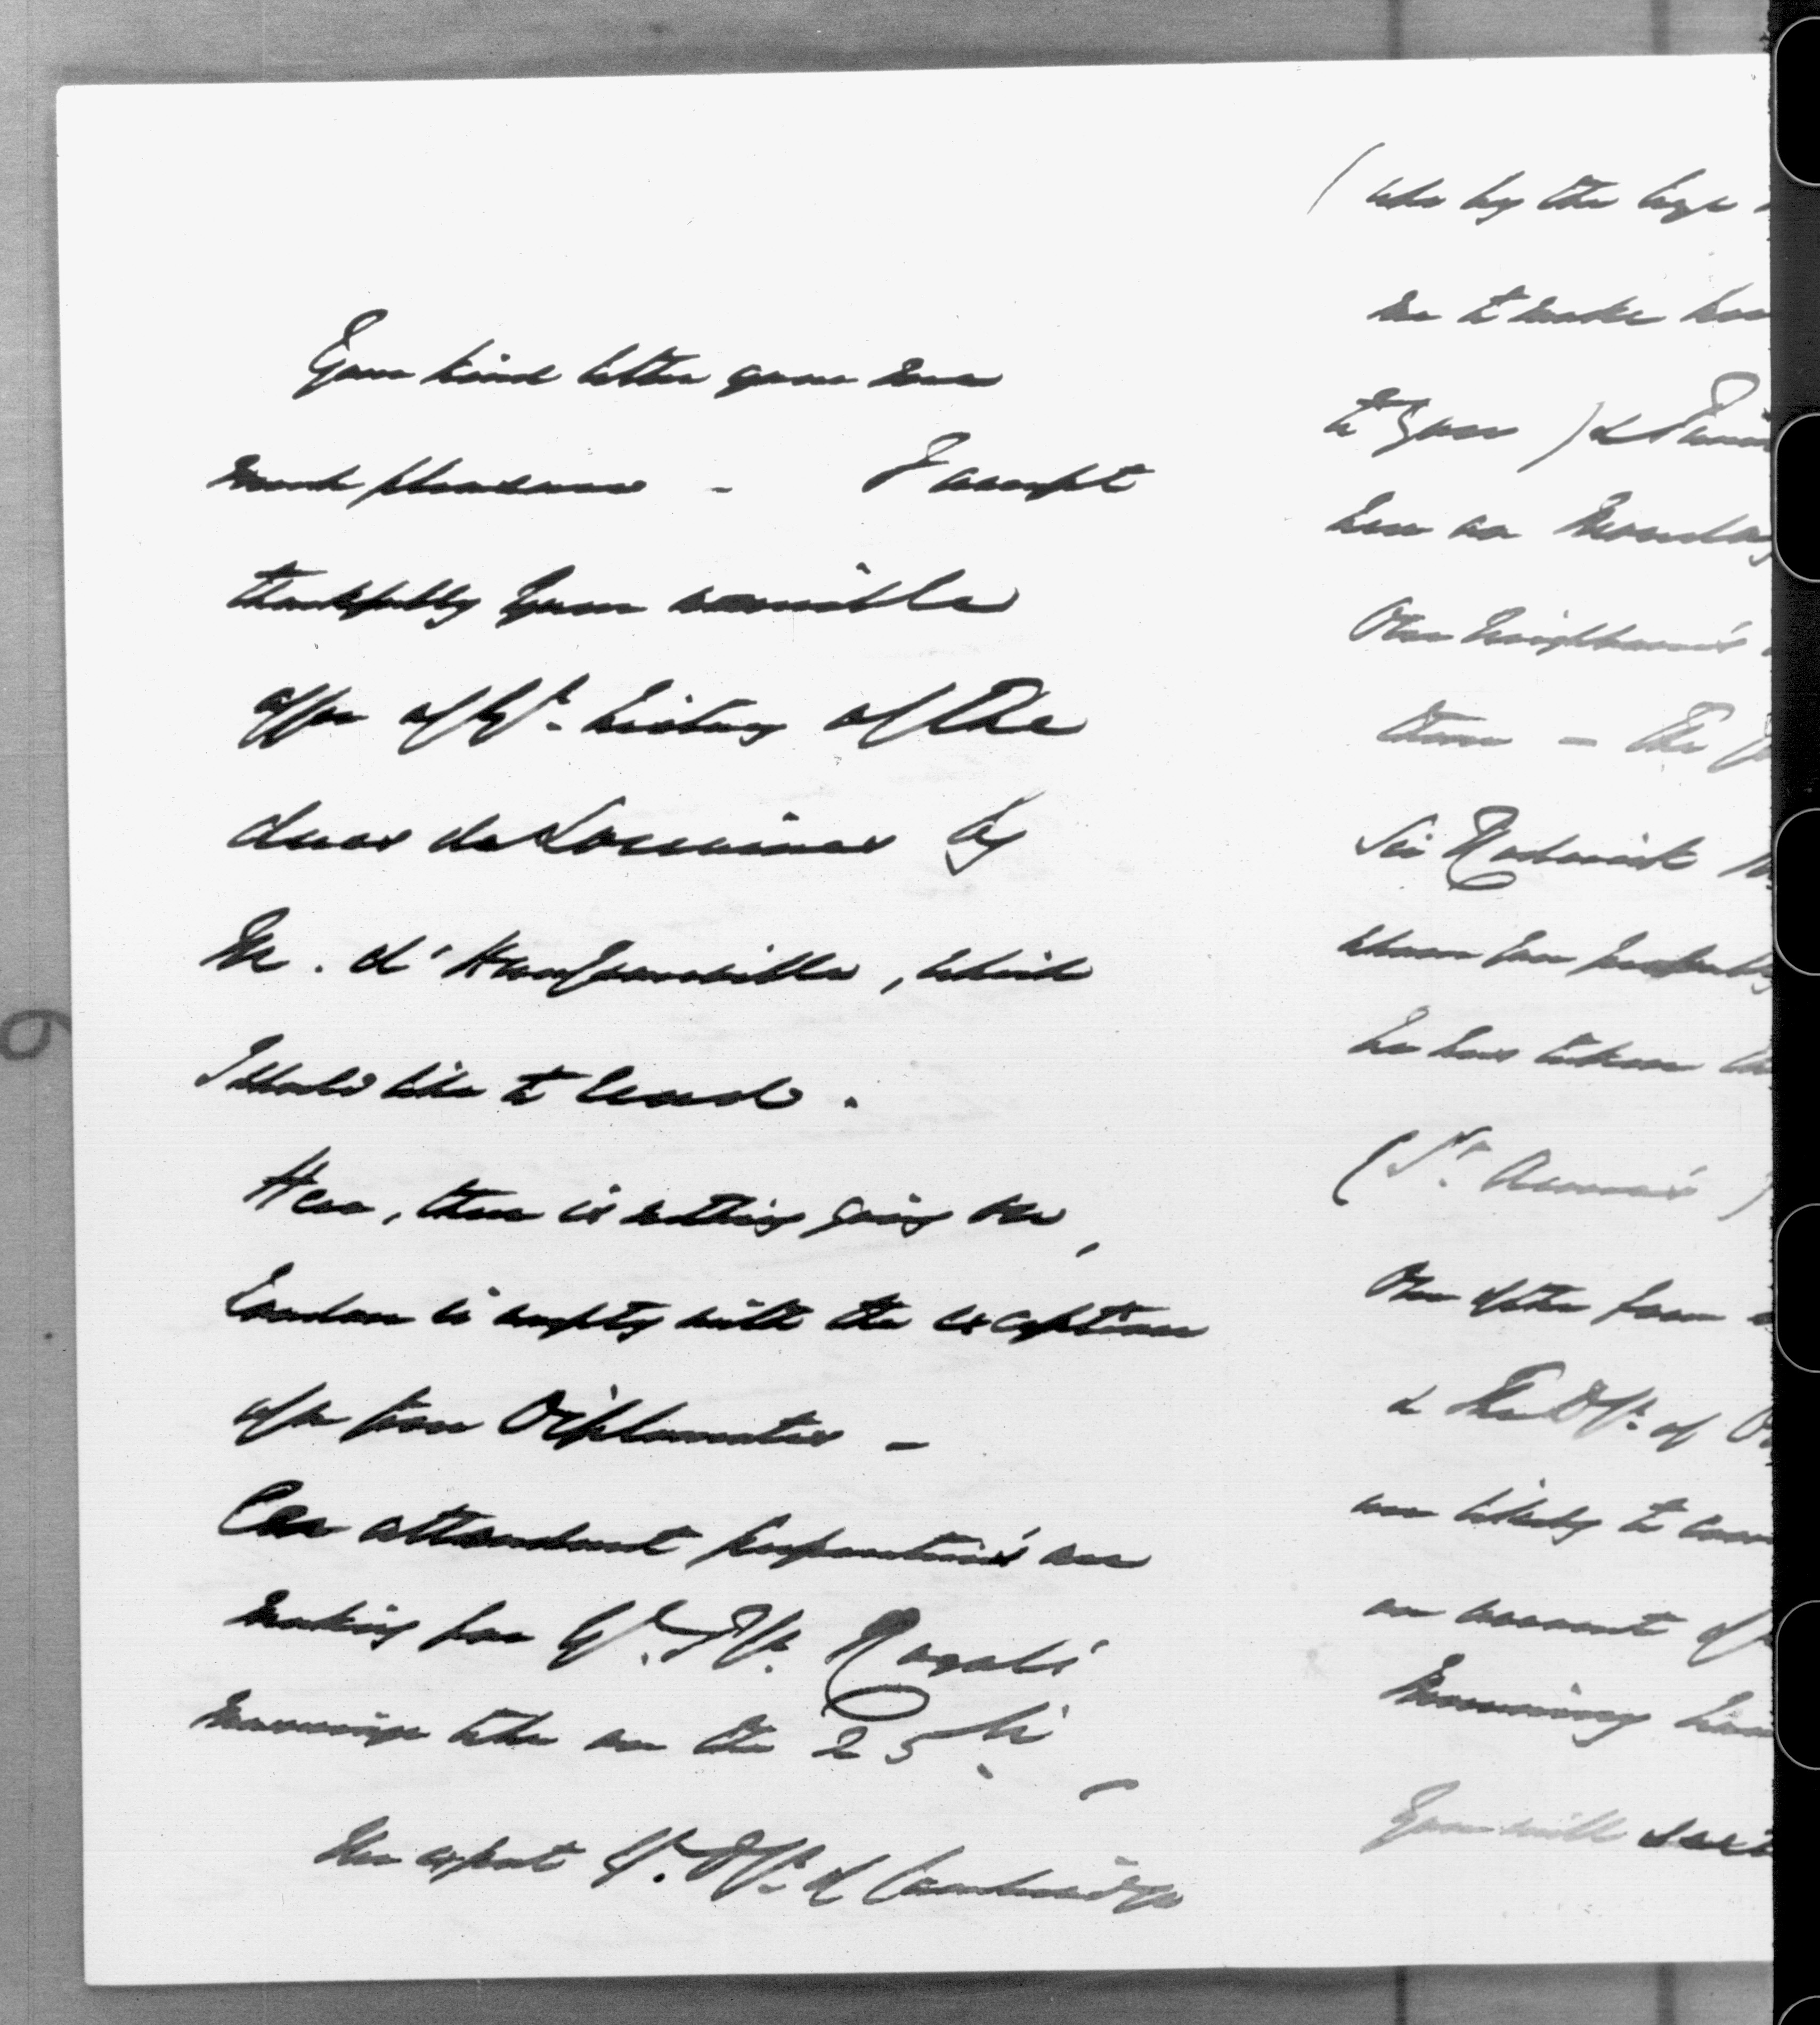 Your kind letter gave me
much pleasure - I accept
thankfully your amiable
offer of history of The
ducs de Lorraine by
Mr. d'Haussonville, which
I should like to read.
Here, there is nothing going on,
London is empty with the exception
of a few Diplomates -
attendant preparations are
making for Royal
marriage on the 25th
We expect of Cambridge
(who by the bye
me to make her
to you) &
here on Monday
Our neighbours
them - The
Sir Roderick
whom you probably
he has taken
(St. Anne's)
One of the
& The of
are likely to come
on account of
Mourning
You will